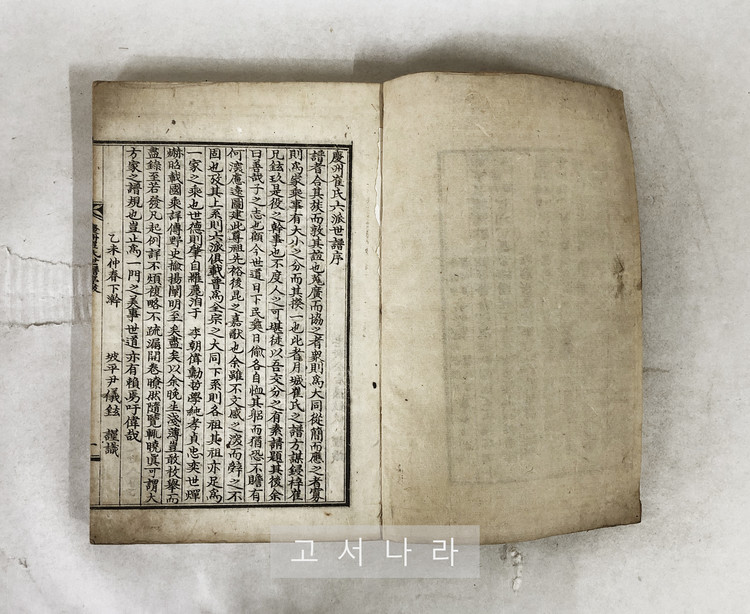 慶州崔氏六派世譜序
譜者合其族而敦其誼也蒐廣而協之者衆則爲大同從簡而應之者寡
則爲家乘事有大小之分而其揆一也此者月城崔氏之譜方謀鋟梓崔
兄鉉玖是役之幹事也不度人之可堪徒以吾交分之有素請題其後余
曰善哉子之志也顧今世道日下民奠日偸各自恤其躬而猶恐不贍有
何淡慮遠圖建此尊祖先裕後昆之嘉猷也余雖不文感之深而辭之不
固也攷其上系則六派俱載普爲全宗之大同下系則各祖其祖亦足爲
一家之乘也世德則肇自羅麗洎于 李朝偉勳哲學純孝貞忠奕世燀
爀昭載國乘詳傳野史揄揚闡明至矣盡矣以余晚生淺薄豈敢枚擧而
盡錄至若發凡起例詳不煩複略不疏漏開卷瞭然隨覽輒曉眞可謂大
方家之譜規也豈止爲一門之美事世道亦有賴焉吁偉哉
乙未仲春下澣 坡平尹儀鉉 謹識
고서나라